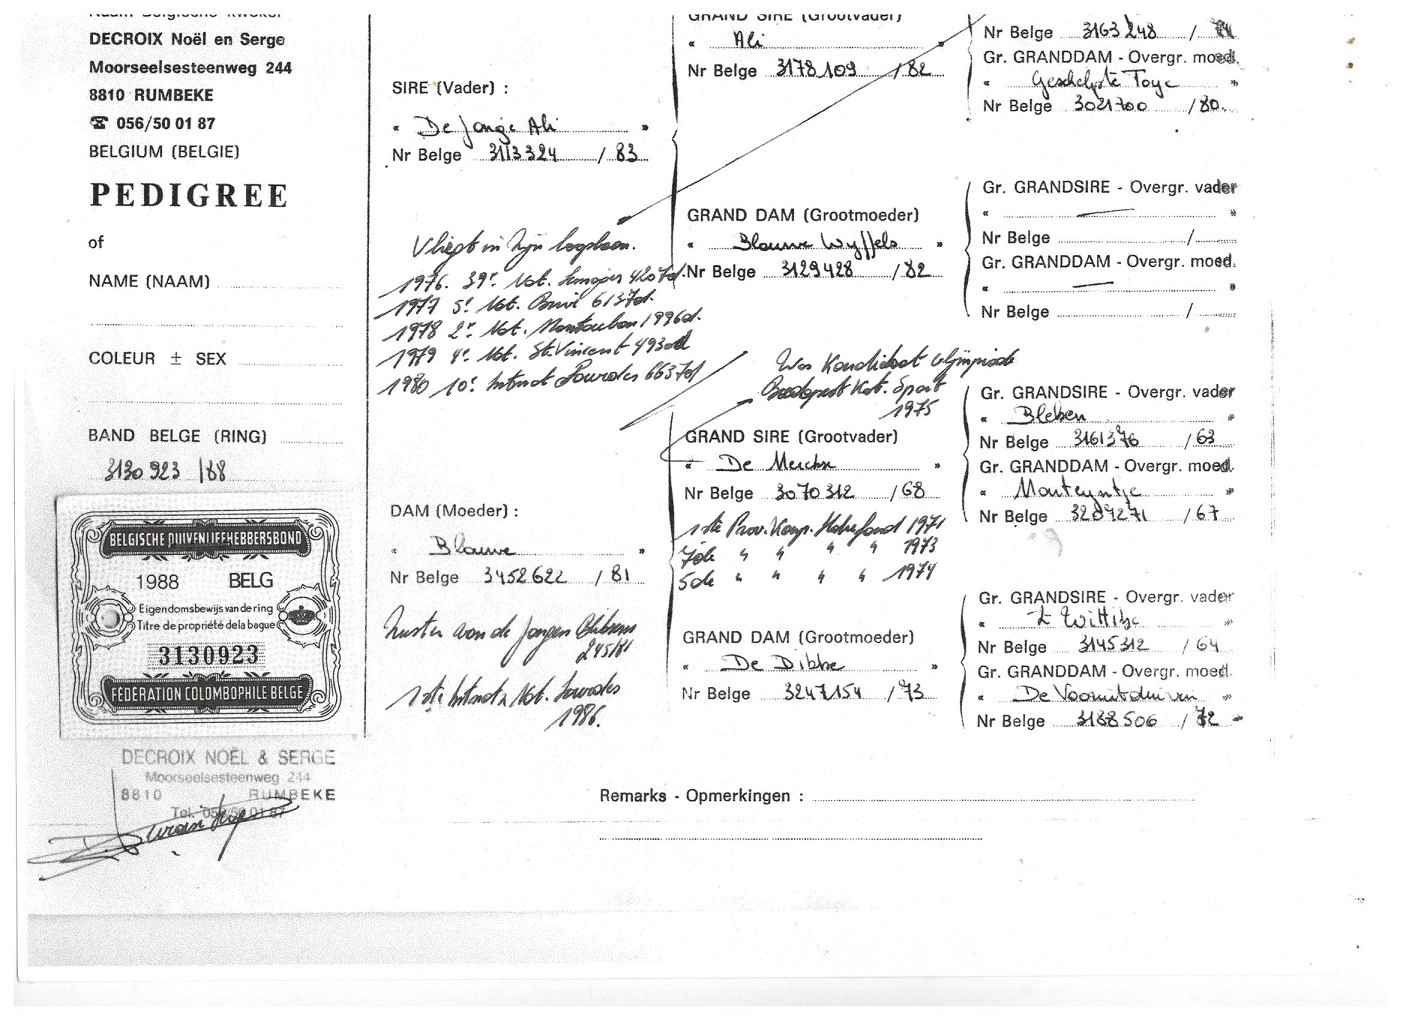 Naam Belgische kweker
DECROIX Noël en Serge
Moorseelsesteenweg 244
8810 RUMBEKE
☎ 056/50 01 87
BELGIUM (BELGIE)
PEDIGREE
of
NAME (NAAM)
COLEUR ± SEX
BAND BELGE (RING)
3130923 /88
BELGISCHE DUIVENLIEFHEBBERSBOND
1988 BELG
Eigendomsbewijs van de ring
Titre de propriété de la bague
3130923
FÉDÉRATION COLOMBOPHILE BELGE
DECROIX NOËL & SERGE
Moorseelsesteenweg 244
8810 RUMBEKE
Tel. 056/50 01 87
SIRE (Vader) :
" De Jonge Ali "
Nr Belge 3113324 / 83
Vliegt in zijn loopbaan.
1976. 39e Nat. Limoges 4207d.
1977 5e Nat. Brive 6137d.
1978 2e Nat. Montauban 1996d.
1979 4e Nat. St. Vincent 493od
1980 10e Internat Lourdes 6637d
DAM (Moeder) :
" Blauwe "
Nr Belge 3452622 / 81
Zuster van de Jongen Bliksem
245/81
1ste Internat Nat. Lourdes
1986.
GRAND SIRE (Grootvader)
" Ali "
Nr Belge 3178109 / 82
GRAND DAM (Grootmoeder)
" Blauwe Wyffels "
Nr Belge 3129428 / 82
Was Kandidaat Olympiade
Boedapest Kat. Sport
1975
GRAND SIRE (Grootvader)
" De Merckx "
Nr Belge 3070312 / 68
1ste Prov. Kamp. Halve fond 1971
7de " " " " 1973
5de " " " " 1974
GRAND DAM (Grootmoeder)
" De Dikke "
Nr Belge 3247154 / 73
Nr Belge 3163248 / 74
Gr. GRANDDAM - Overgr. moed.
" Geschelpte Toye "
Nr Belge 3021700 / 80
Gr. GRANDSIRE - Overgr. vader
" — "
Nr Belge /
Gr. GRANDDAM - Overgr. moed.
" — "
Nr Belge /
Gr. GRANDSIRE - Overgr. vader
" Bleken "
Nr Belge 3161376 / 63
Gr. GRANDDAM - Overgr. moed.
" Monteyntje "
Nr Belge 3209271 / 67
Gr. GRANDSIRE - Overgr. vader
" 't Wittike "
Nr Belge 3145312 / 64
Gr. GRANDDAM - Overgr. moed.
" De Vooruitduivin "
Nr Belge 3138506 / 72
Remarks - Opmerkingen :